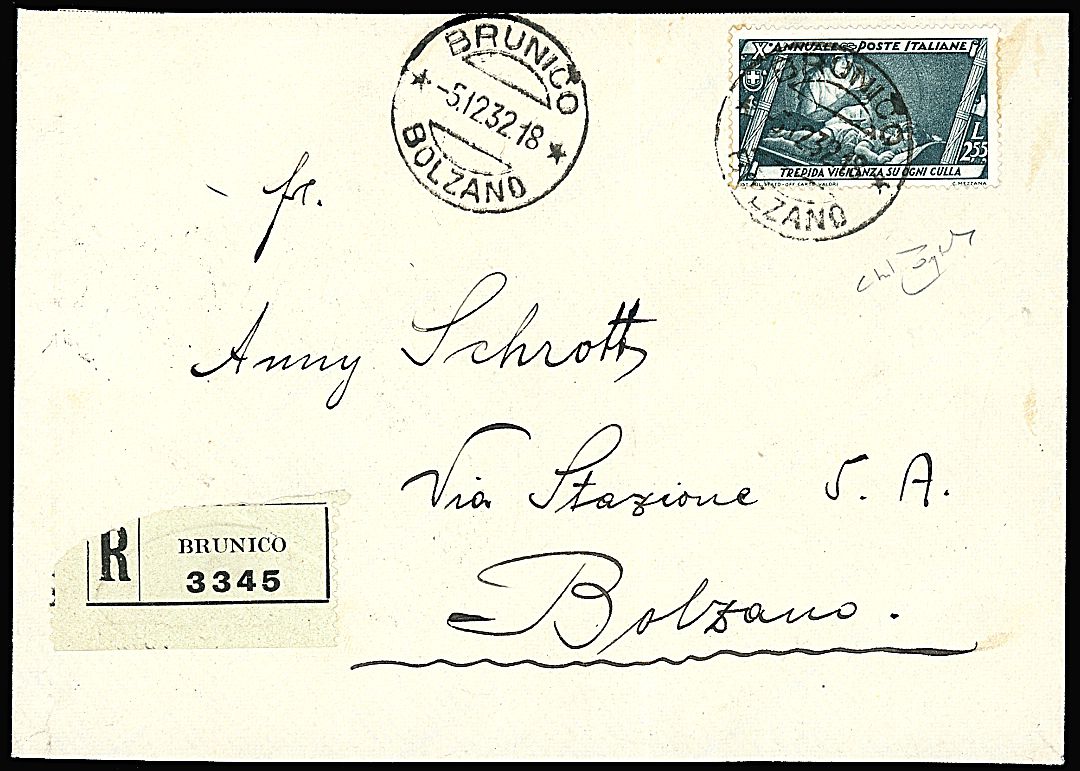 BRUNICO
-5.12.32.18
BOLZANO
X ANNUALE POSTE ITALIANE
BRUNICO
-5.12.32.18
BOLZANO
L
2.55
TREPIDA VIGILANZA SU OGNI CULLA
IST. POL. STATO-OFF. CARTE VALORI C. MEZZANA
fr.
Anny Schrott
Via Stazione 5. A.
Bolzano.
R BRUNICO
3345